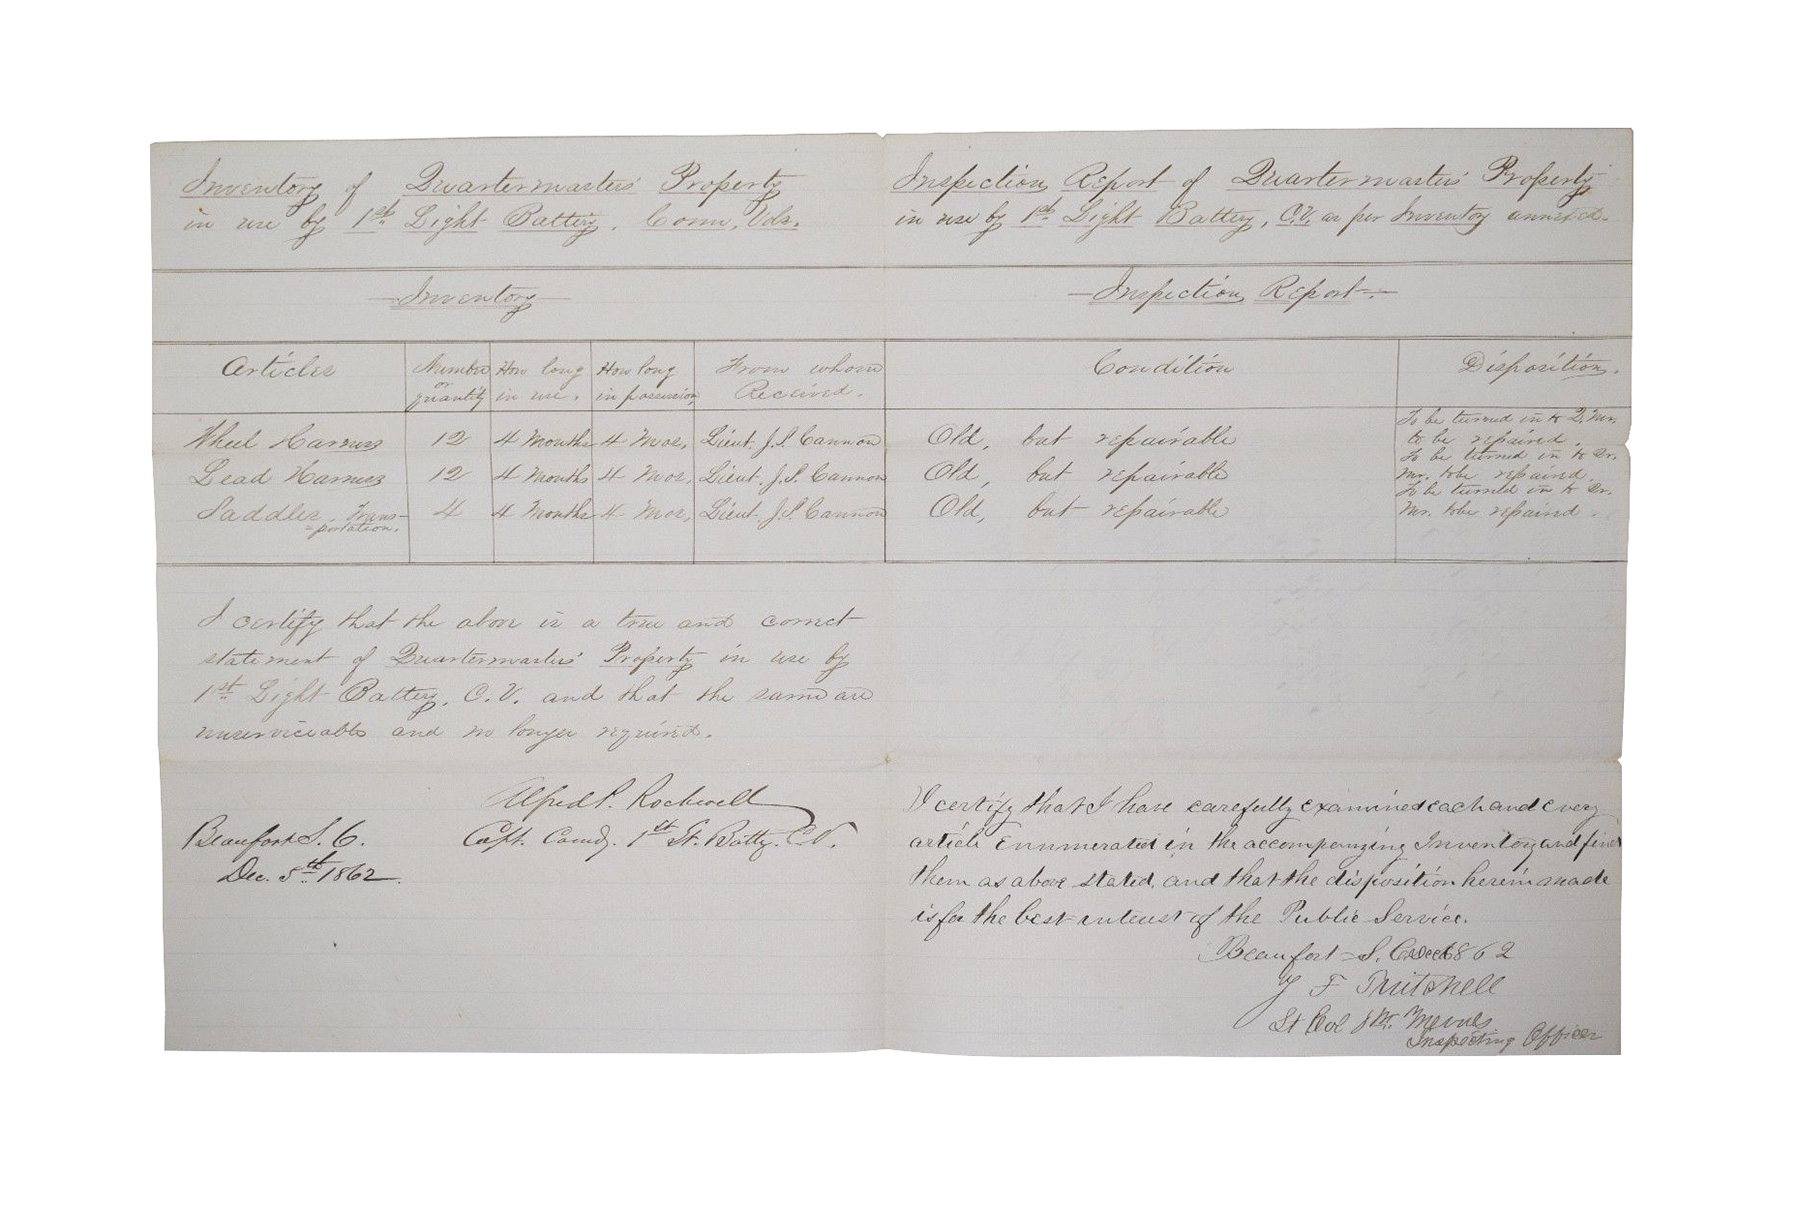 Inventory of Quartermasters' Property
in use by 1st Light Battery, Conn. Vols.
Inventory
Articles
Number or quantity
How long in use.
How long in possession
From whom Received.
Wheel Harness 12 4 Months 4 Mos, Lieut. J.S. Cannon
Lead Harness 12 4 Months 4 Mos, Lieut. J.S. Cannon
Saddles, Trans-portation. 4 4 Months 4 Mos, Lieut. J.S. Cannon
I certify that the above is a true and correct
statement of Quartermasters' Property in use by
1st Light Battery, C.V. and that the same are
unserviceable and no longer required.
Alfred P. Rockwell
Capt. Comdg. 1st Lt. Batty. C.V.
Beaufort S.C.
Dec. 5th 1862.
Inspection Report of Quartermasters' Property
in use by 1st Light Battery, C.V. as per Inventory annexed.
Inspection Report.
Condition
Disposition.
Old, but repairable
To be turned in to Q. Mr.
to be repaired.
Old, but repairable
To be turned in to Qr.
Mr. to be repaired.
Old, but repairable
To be turned in to Qr.
Mr. to be repaired.
I certify that I have carefully examined each and every
article Enumerated in the accompanying Inventory and find
them as above stated, and that the disposition herein made
is for the best interest of the Public Service.
Beaufort S. C. Dec 1862
F
Lt Col 8th
Inspecting Officer